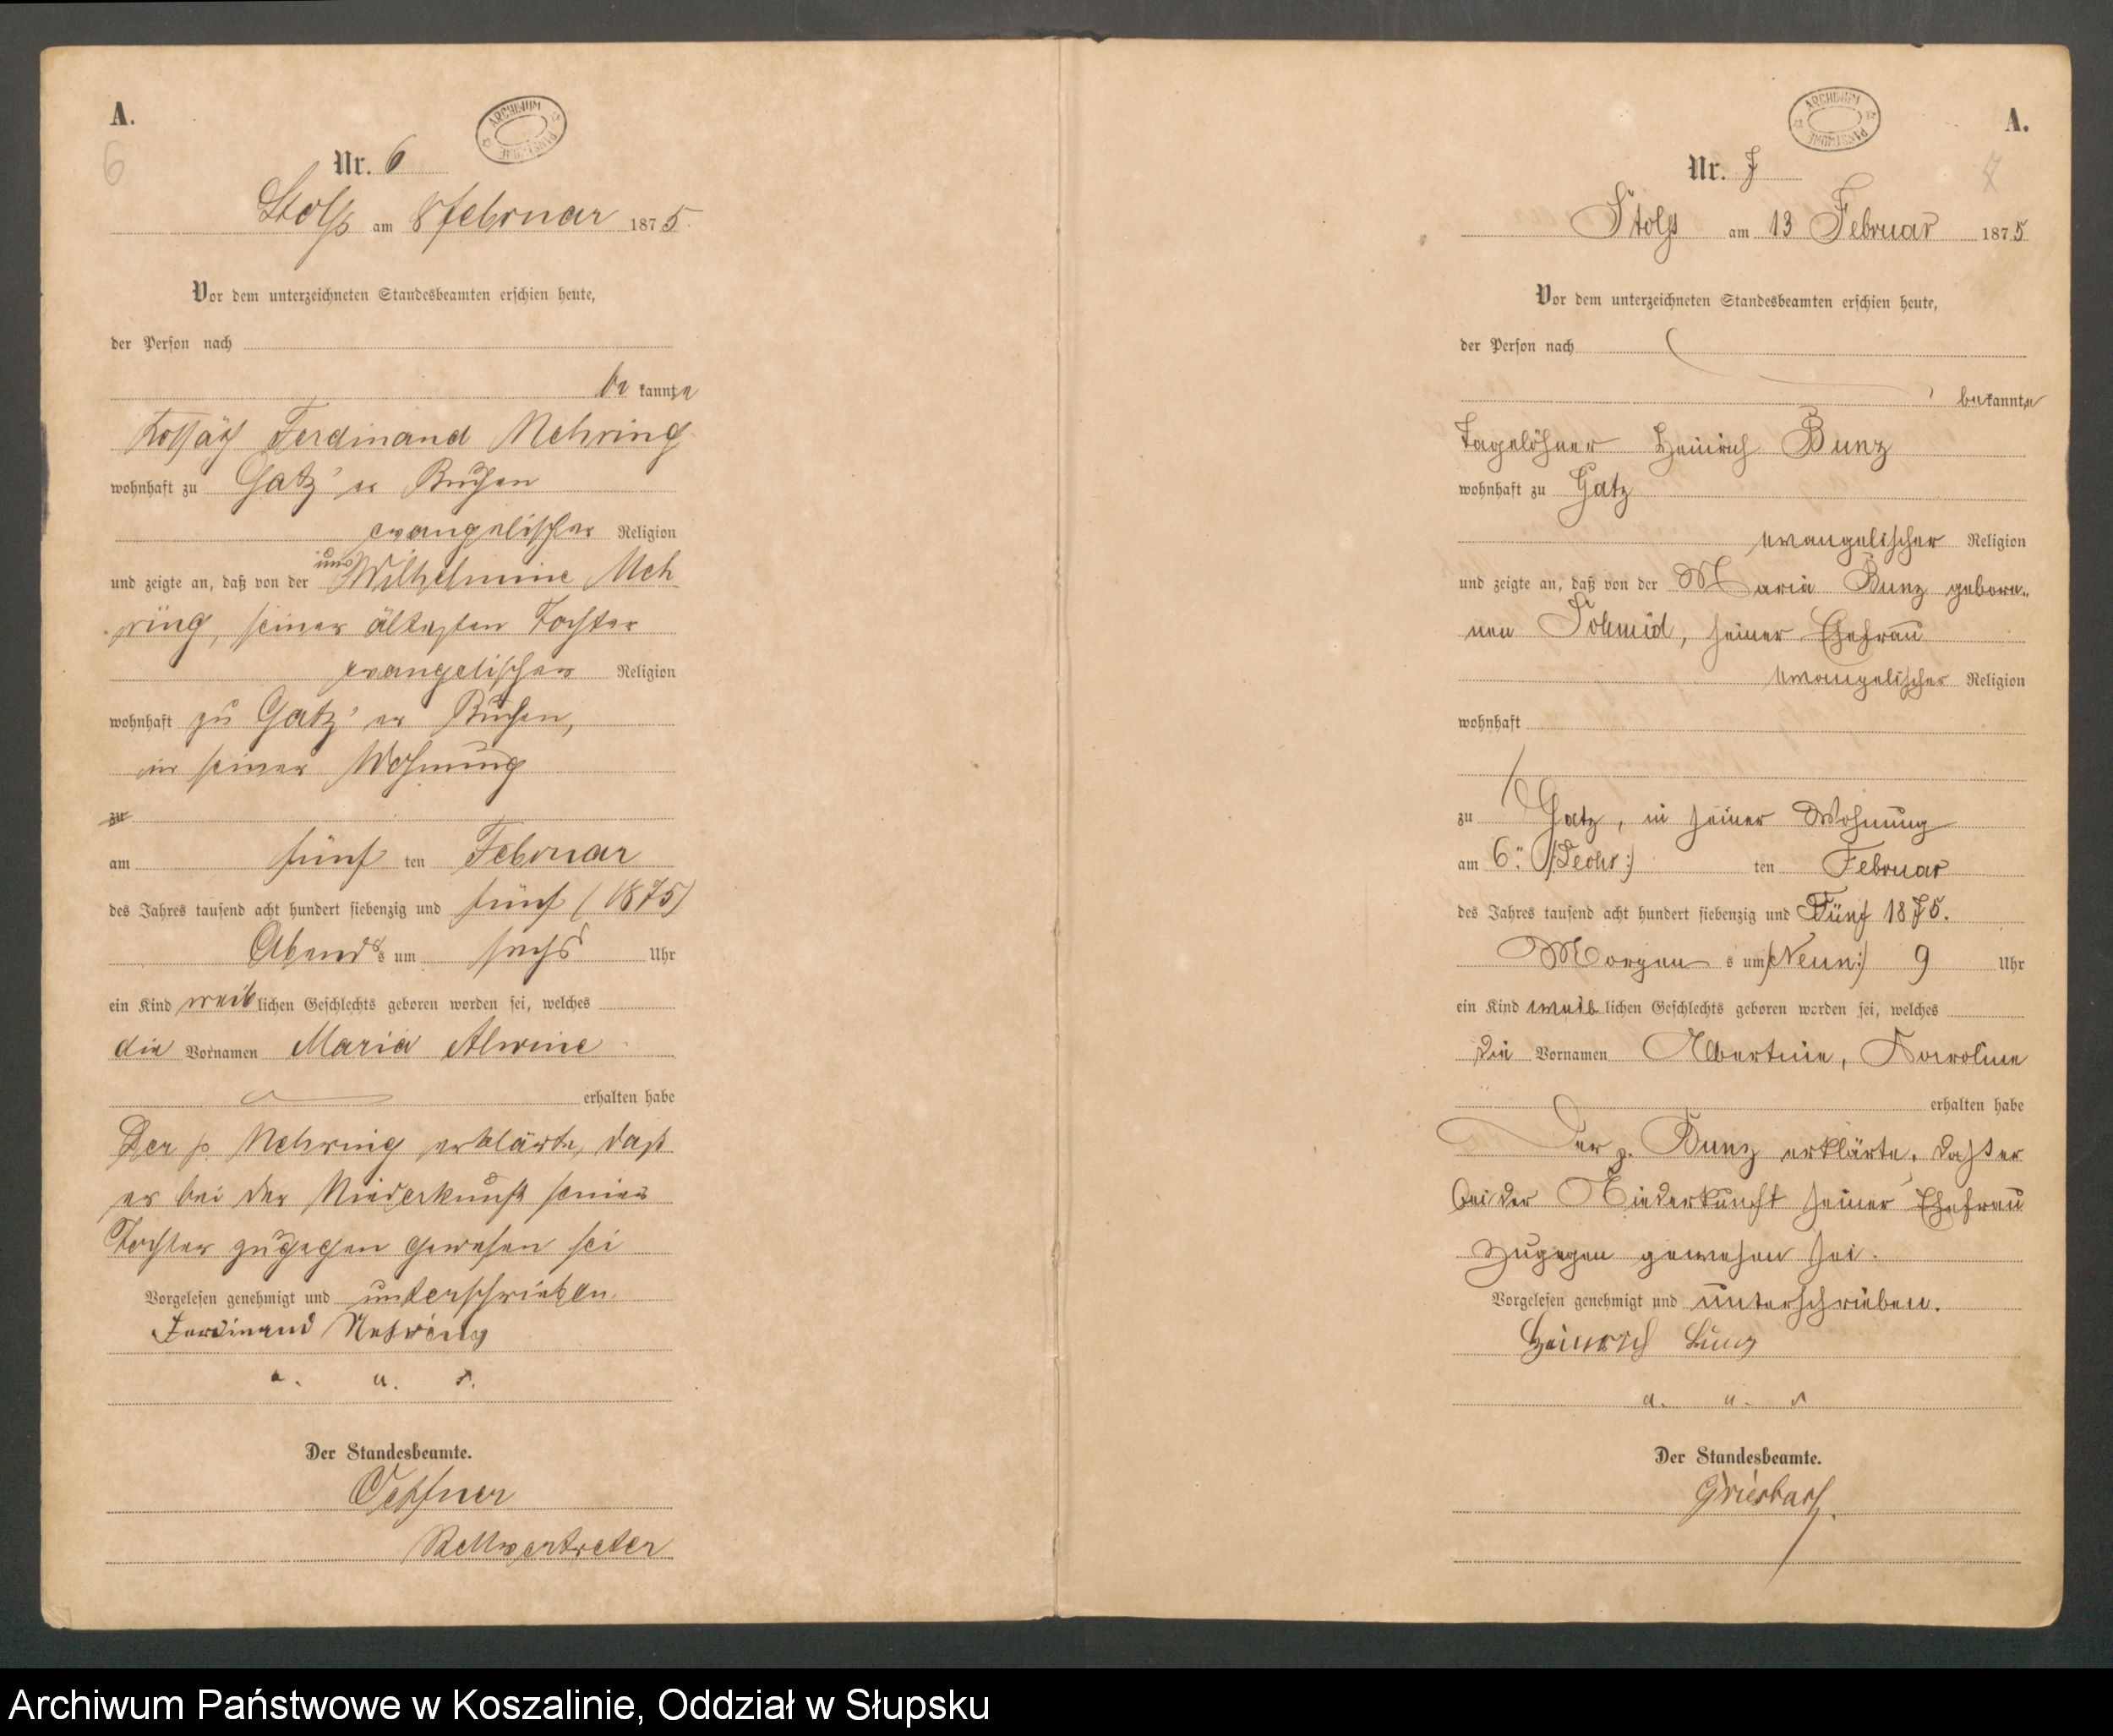 A.
6
ARCHIWUM PAŃSTWOWE
Nr. 6
Stolp am 8 Februar 1875.
Vor dem unterzeichneten Standesbeamten erschien heute,
der Person nach
be kannte
Kossäth Ferdinand Nehring
wohnhaft zu Gatz'er Buchen
evangelischer Religion
und zeigte an, daß von der unv Wilhelmine Neh
ring, seiner ältesten Tochter
evangelischer Religion
wohnhaft zu Gatz'er Buchen,
in seiner Wohnung
zu
am fünf ten Februar
des Jahres tausend acht hundert siebenzig und fünf (1875)
Abends um sechs Uhr
ein Kind weiblichen Geschlechts geboren worden sei, welches
die Vornamen Maria Alwine
erhalten habe
Der p. Nehring erklärte, daß
er bei der Niederkunft seiner
Tochter zugegen gewesen sei
Vorgelesen genehmigt und unterschrieben.
Ferdinand Nehring
a. u. s.
Der Standesbeamte.
Stellvertreter
A.
7
ARCHIWUM PAŃSTWOWE
Nr. 7
Stolp am 13 Februar 1875
Vor dem unterzeichneten Standesbeamten erschien heute,
der Person nach
bekannte
Tagelöhner Heinrich Bunz
wohnhaft zu Gatz
evangelischer Religion
und zeigte an, daß von der Maria Bunz gebore-
nen Schmid, seiner Ehefrau
evangelischer Religion
wohnhaft
zu Gatz, in seiner Wohnung
am 6. (:Sechs:) ten Februar
des Jahres tausend acht hundert siebenzig und Fünf 1875.
Morgens um (:Neun:) 9 Uhr
ein Kind weiblichen Geschlechts geboren worden sei, welches
die Vornamen Albertine, Karoline
erhalten habe
Der p. Bunz erklärte, daß er
bei der Niederkunft seiner Ehefrau
zugegen gewesen sei.
Vorgelesen genehmigt und unterschrieben.
Heinrich Bunz
a. u. s
Der Standesbeamte.
Griesbach.
Archiwum Państwowe w Koszalinie, Oddział w Słupsku